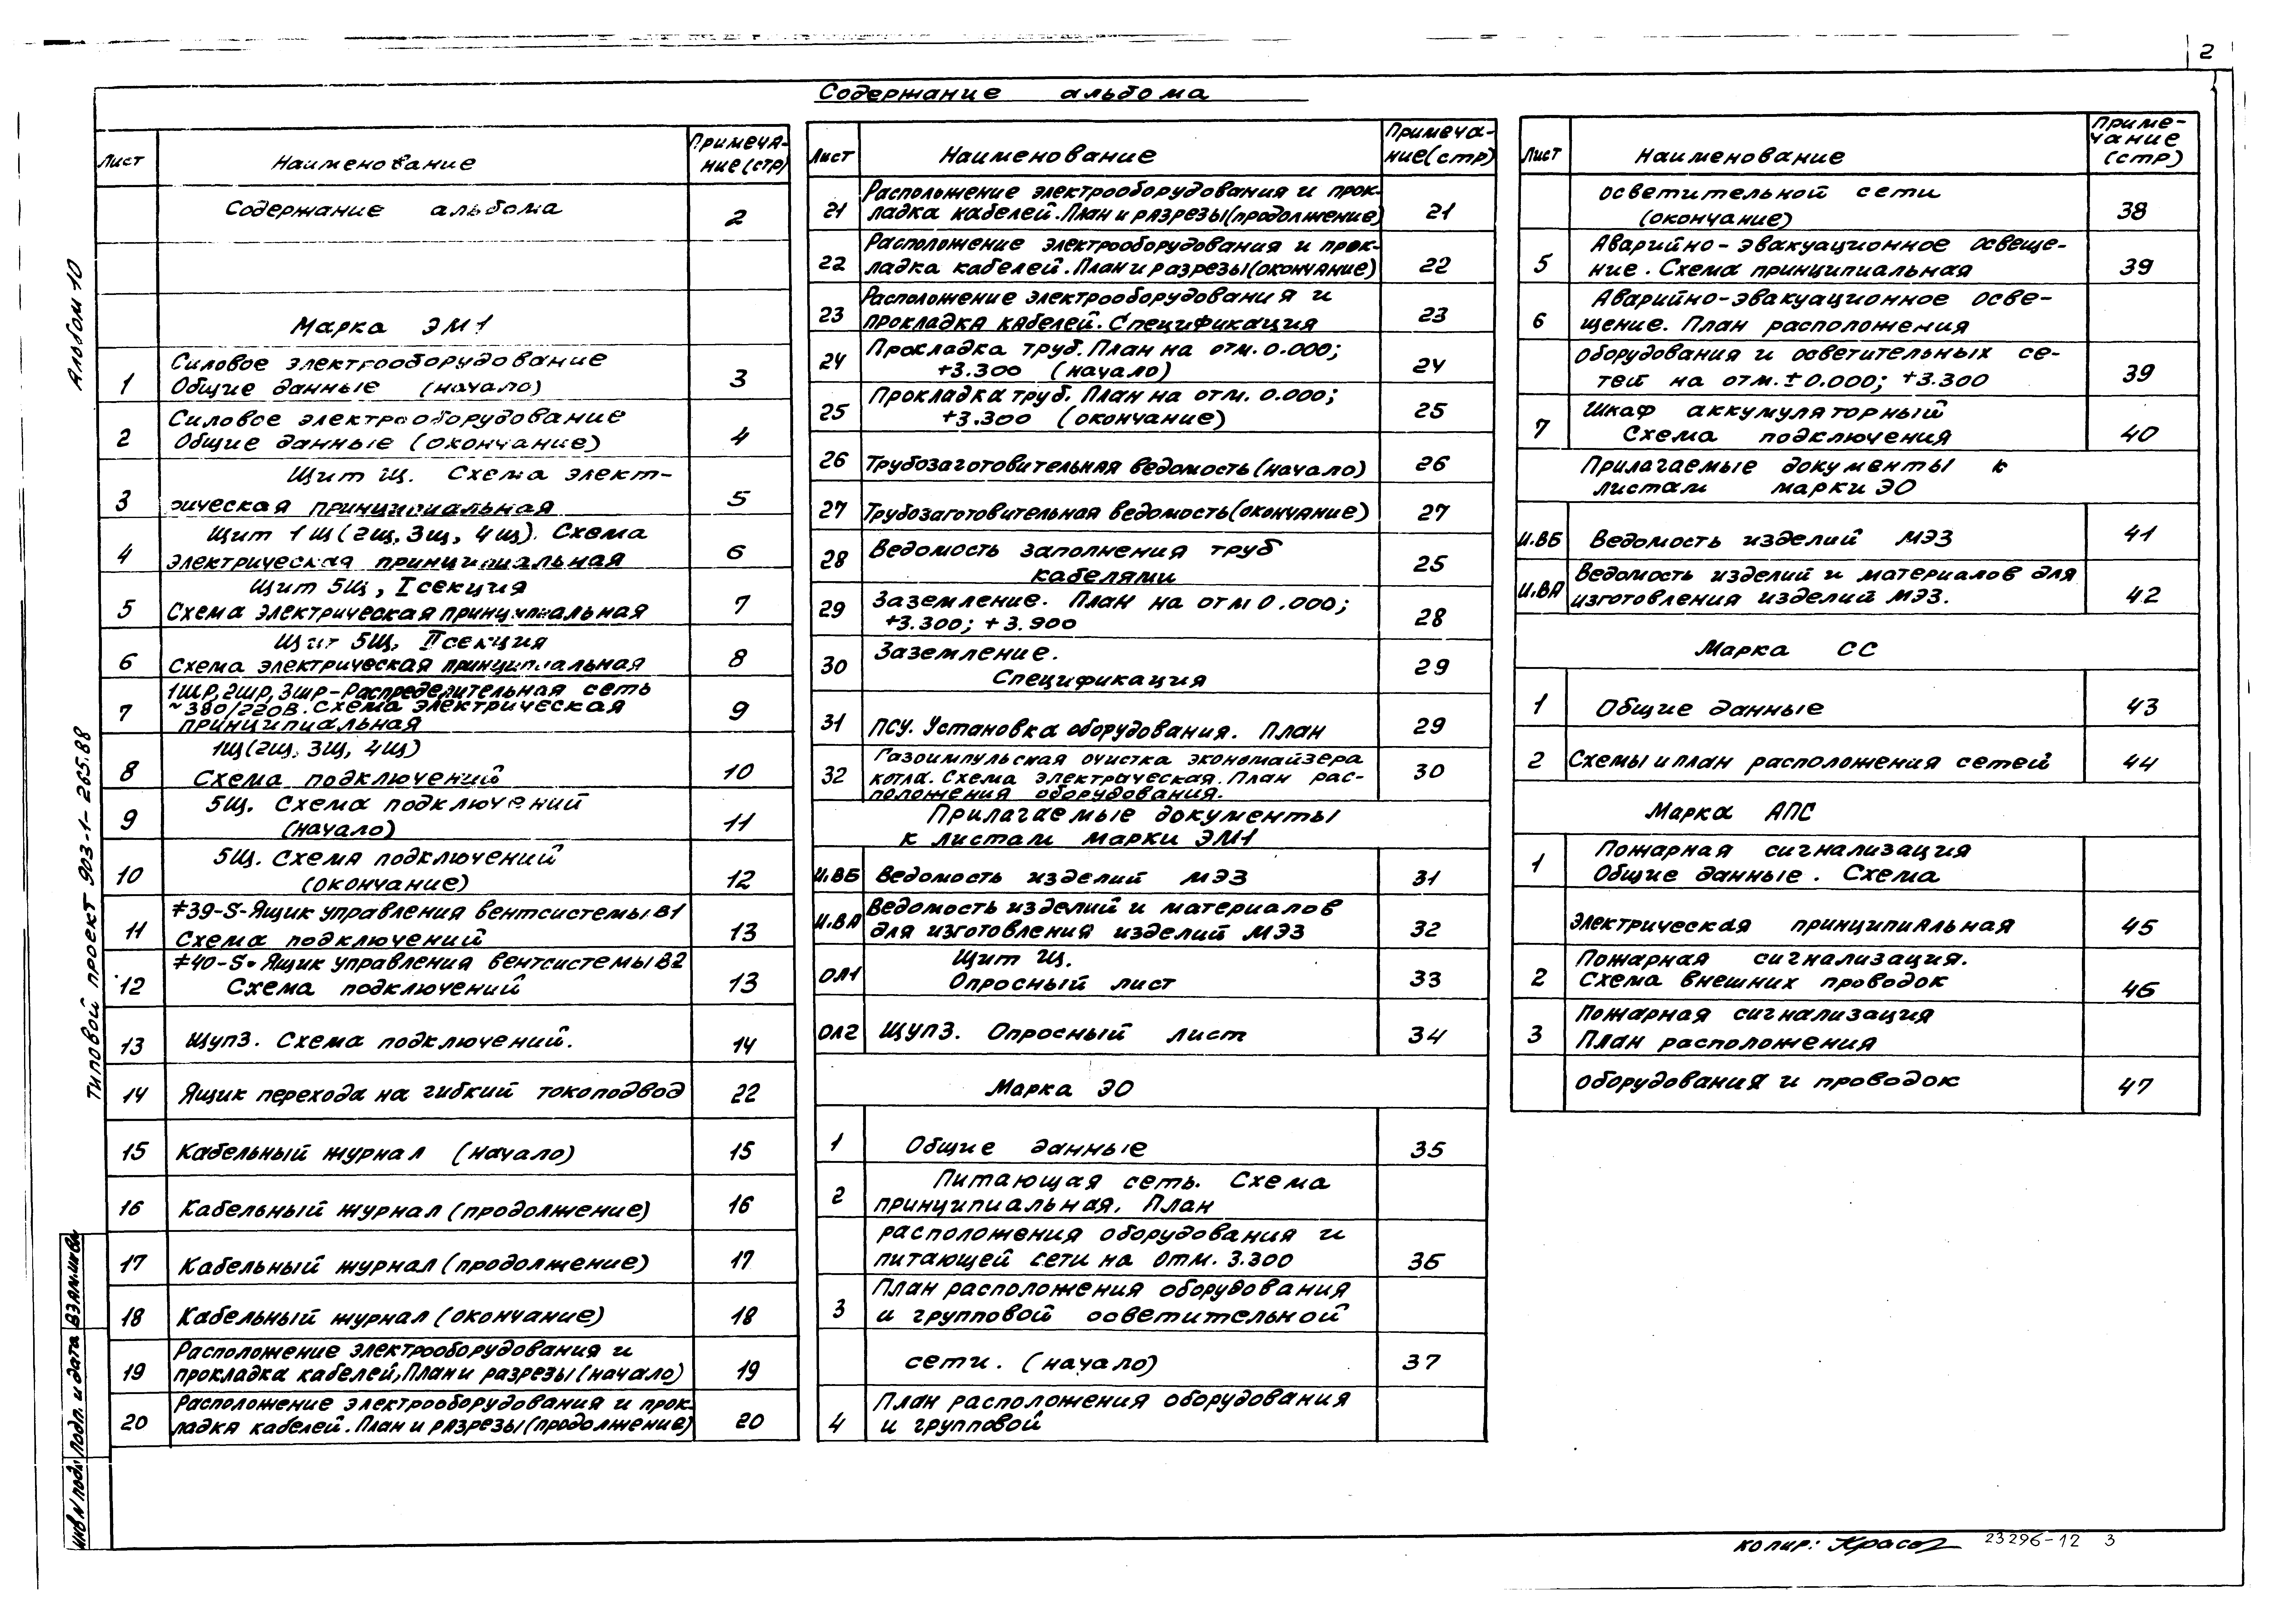 2
Содержание альбома
Лист Наименование Примеча-
ние (стр)
Содержание альбома 2
Марка ЭМ1
Силовое электрооборудование
1 Общие данные (начало) 3
Силовое электрооборудование
2 Общие данные (окончание) 4
Щит Щ. Схема элект-
3 рическая принципиальная 5
Щит 1Щ (2Щ, 3Щ, 4Щ). Схема
4 электрическая принципиальная 6
Щит 5Щ, I секция
5 Схема электрическая принципиальная 7
Щит 5Щ, II секция
6 Схема электрическая принципиальная 8
1ШР, 2ШР, 3ШР - Распределительная сеть
7 ~380/220В. Схема электрическая 9
принципиальная
1Щ (2Щ, 3Щ, 4Щ)
8 Схема подключений 10
9 5Щ. Схема подключений 11
(начало)
10 5Щ. Схема подключений 12
(окончание)
≠39-S-Ящик управления вентсистемы В1
11 Схема подключений 13
≠40-S-Ящик управления вентсистемы В2
12 Схема подключений 13
13 ЩУПЗ. Схема подключений. 14
14 Ящик перехода на гибкий токоподвод 22
15 Кабельный журнал (начало) 15
16 Кабельный журнал (продолжение) 16
17 Кабельный журнал (продолжение) 17
18 Кабельный журнал (окончание) 18
Расположение электрооборудования и
19 прокладка кабелей, План и разрезы (начало) 19
Расположение электрооборудования и прок-
20 ладка кабелей. План и разрезы (продолжение) 20
Лист Наименование Примеча-
ние (стр)
Расположение электрооборудования и прок-
21 ладка кабелей. План и разрезы (продолжение) 21
Расположение электрооборудования и прок-
22 ладка кабелей. План и разрезы (окончание) 22
Расположение электрооборудования и
23 прокладка кабелей. Спецификация 23
24 Прокладка труб. План на отм. 0.000; 24
+3.300 (начало)
25 Прокладка труб. План на отм. 0.000; 25
+3.300 (окончание)
26 Трубозаготовительная ведомость (начало) 26
27 Трубозаготовительная ведомость (окончание) 27
28 Ведомость заполнения труб 25
кабелями
29 Заземление. План на отм 0.000; 28
+3.300; +3.900
30 Заземление. 29
Спецификация
31 ПСУ. Установка оборудования. План 29
Газоимпульсная очистка экономайзера
32 котла. Схема электрическая. План рас- 30
положения оборудования.
Прилагаемые документы
к листам марки ЭМ1
И.ВБ Ведомость изделий МЭЗ 31
И.ВА Ведомость изделий и материалов
для изготовления изделий МЭЗ 32
ОЛ1 Щит Щ.
Опросный лист 33
ОЛ2 ЩУПЗ. Опросный лист 34
Марка ЭО
1 Общие данные 35
Питающая сеть. Схема
2 принципиальная. План
расположения оборудования и
питающей сети на отм. 3.300 36
План расположения оборудования
3 и групповой осветительной
сети. (начало) 37
План расположения оборудования
4 и групповой
Лист Наименование Приме-
чание
(стр)
осветительной сети
(окончание) 38
Аварийно-эвакуационное освеще-
5 ние. Схема принципиальная 39
Аварийно-эвакуационное осве-
6 щение. План расположения
оборудования и осветительных се-
тей на отм. ±0.000; +3.300 39
7 Шкаф аккумуляторный
Схема подключения 40
Прилагаемые документы к
листам марки ЭО
И.ВБ Ведомость изделий МЭЗ 41
И.ВА Ведомость изделий и материалов для
изготовления изделий МЭЗ. 42
Марка СС
1 Общие данные 43
2 Схемы и план расположения сетей 44
Марка АПС
1 Пожарная сигнализация
Общие данные. Схема
электрическая принципиальная 45
Пожарная сигнализация.
2 Схема внешних проводок 46
Пожарная сигнализация
3 План расположения
оборудования и проводок 47
Альбом 10
Типовой проект 903-1-265.88
Взам.инв.
Подп. и дата
Инв N подл
копир: Красо 23296-12 3